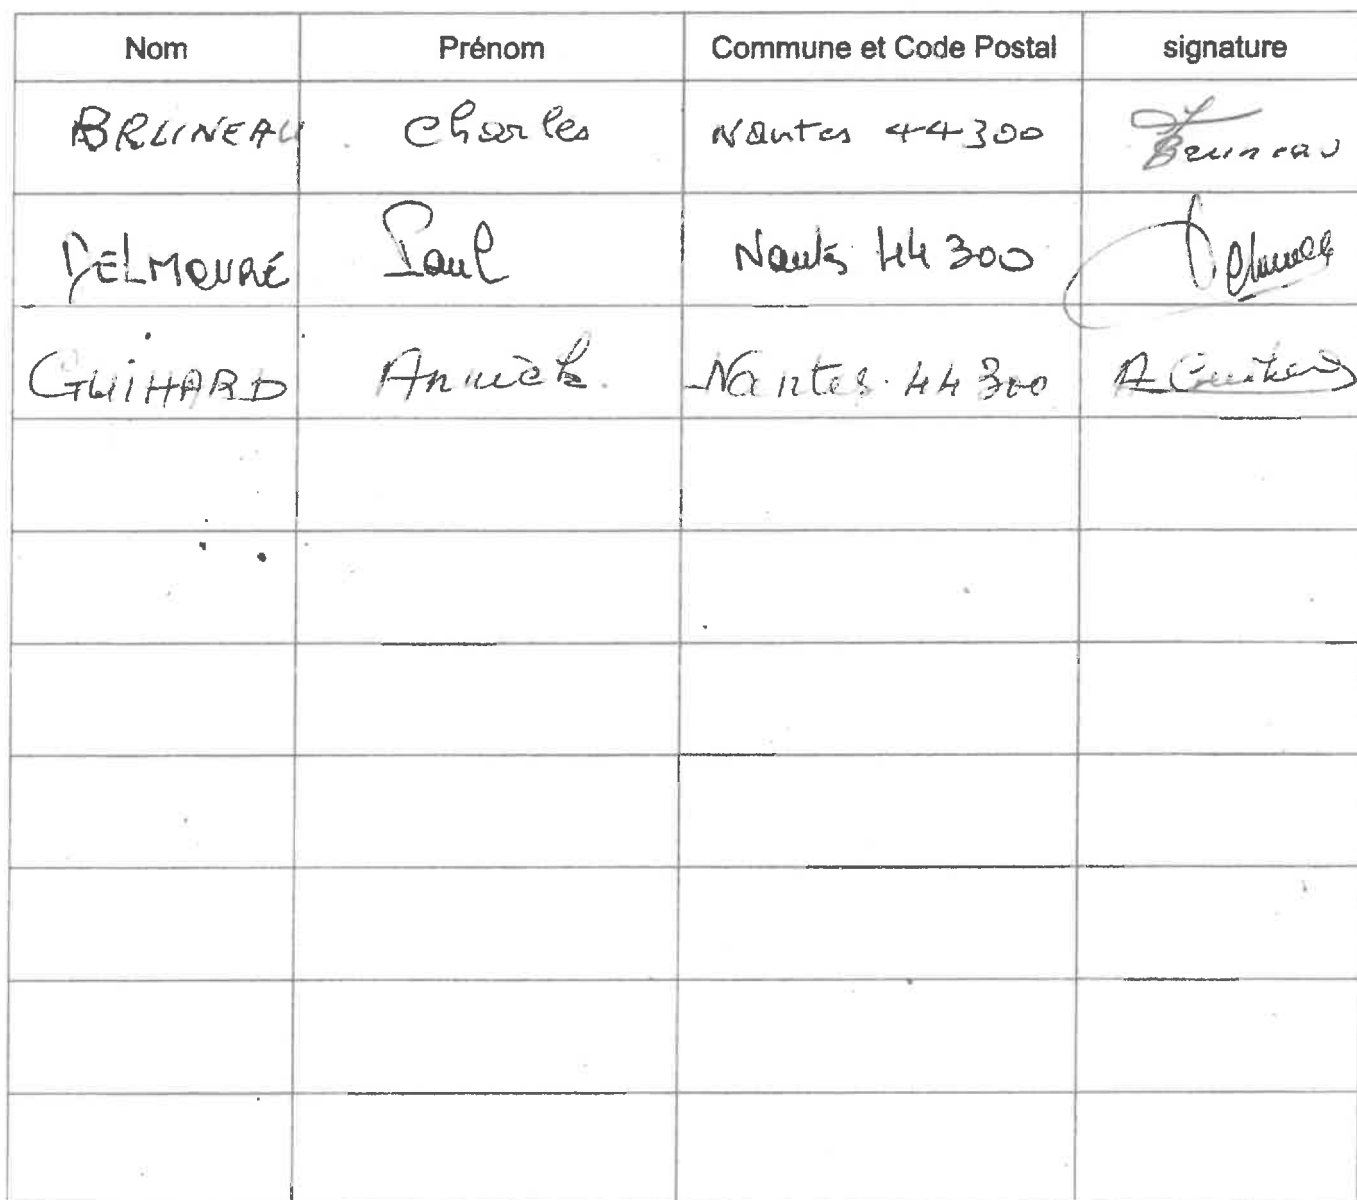 Nom Prénom Commune et Code Postal signature
BRUNEAU Charles Nantes 44300 Bruneau
DELMOURÉ Paul Nantes 44300
GUIHARD Annick Nantes 44300 A Guihard